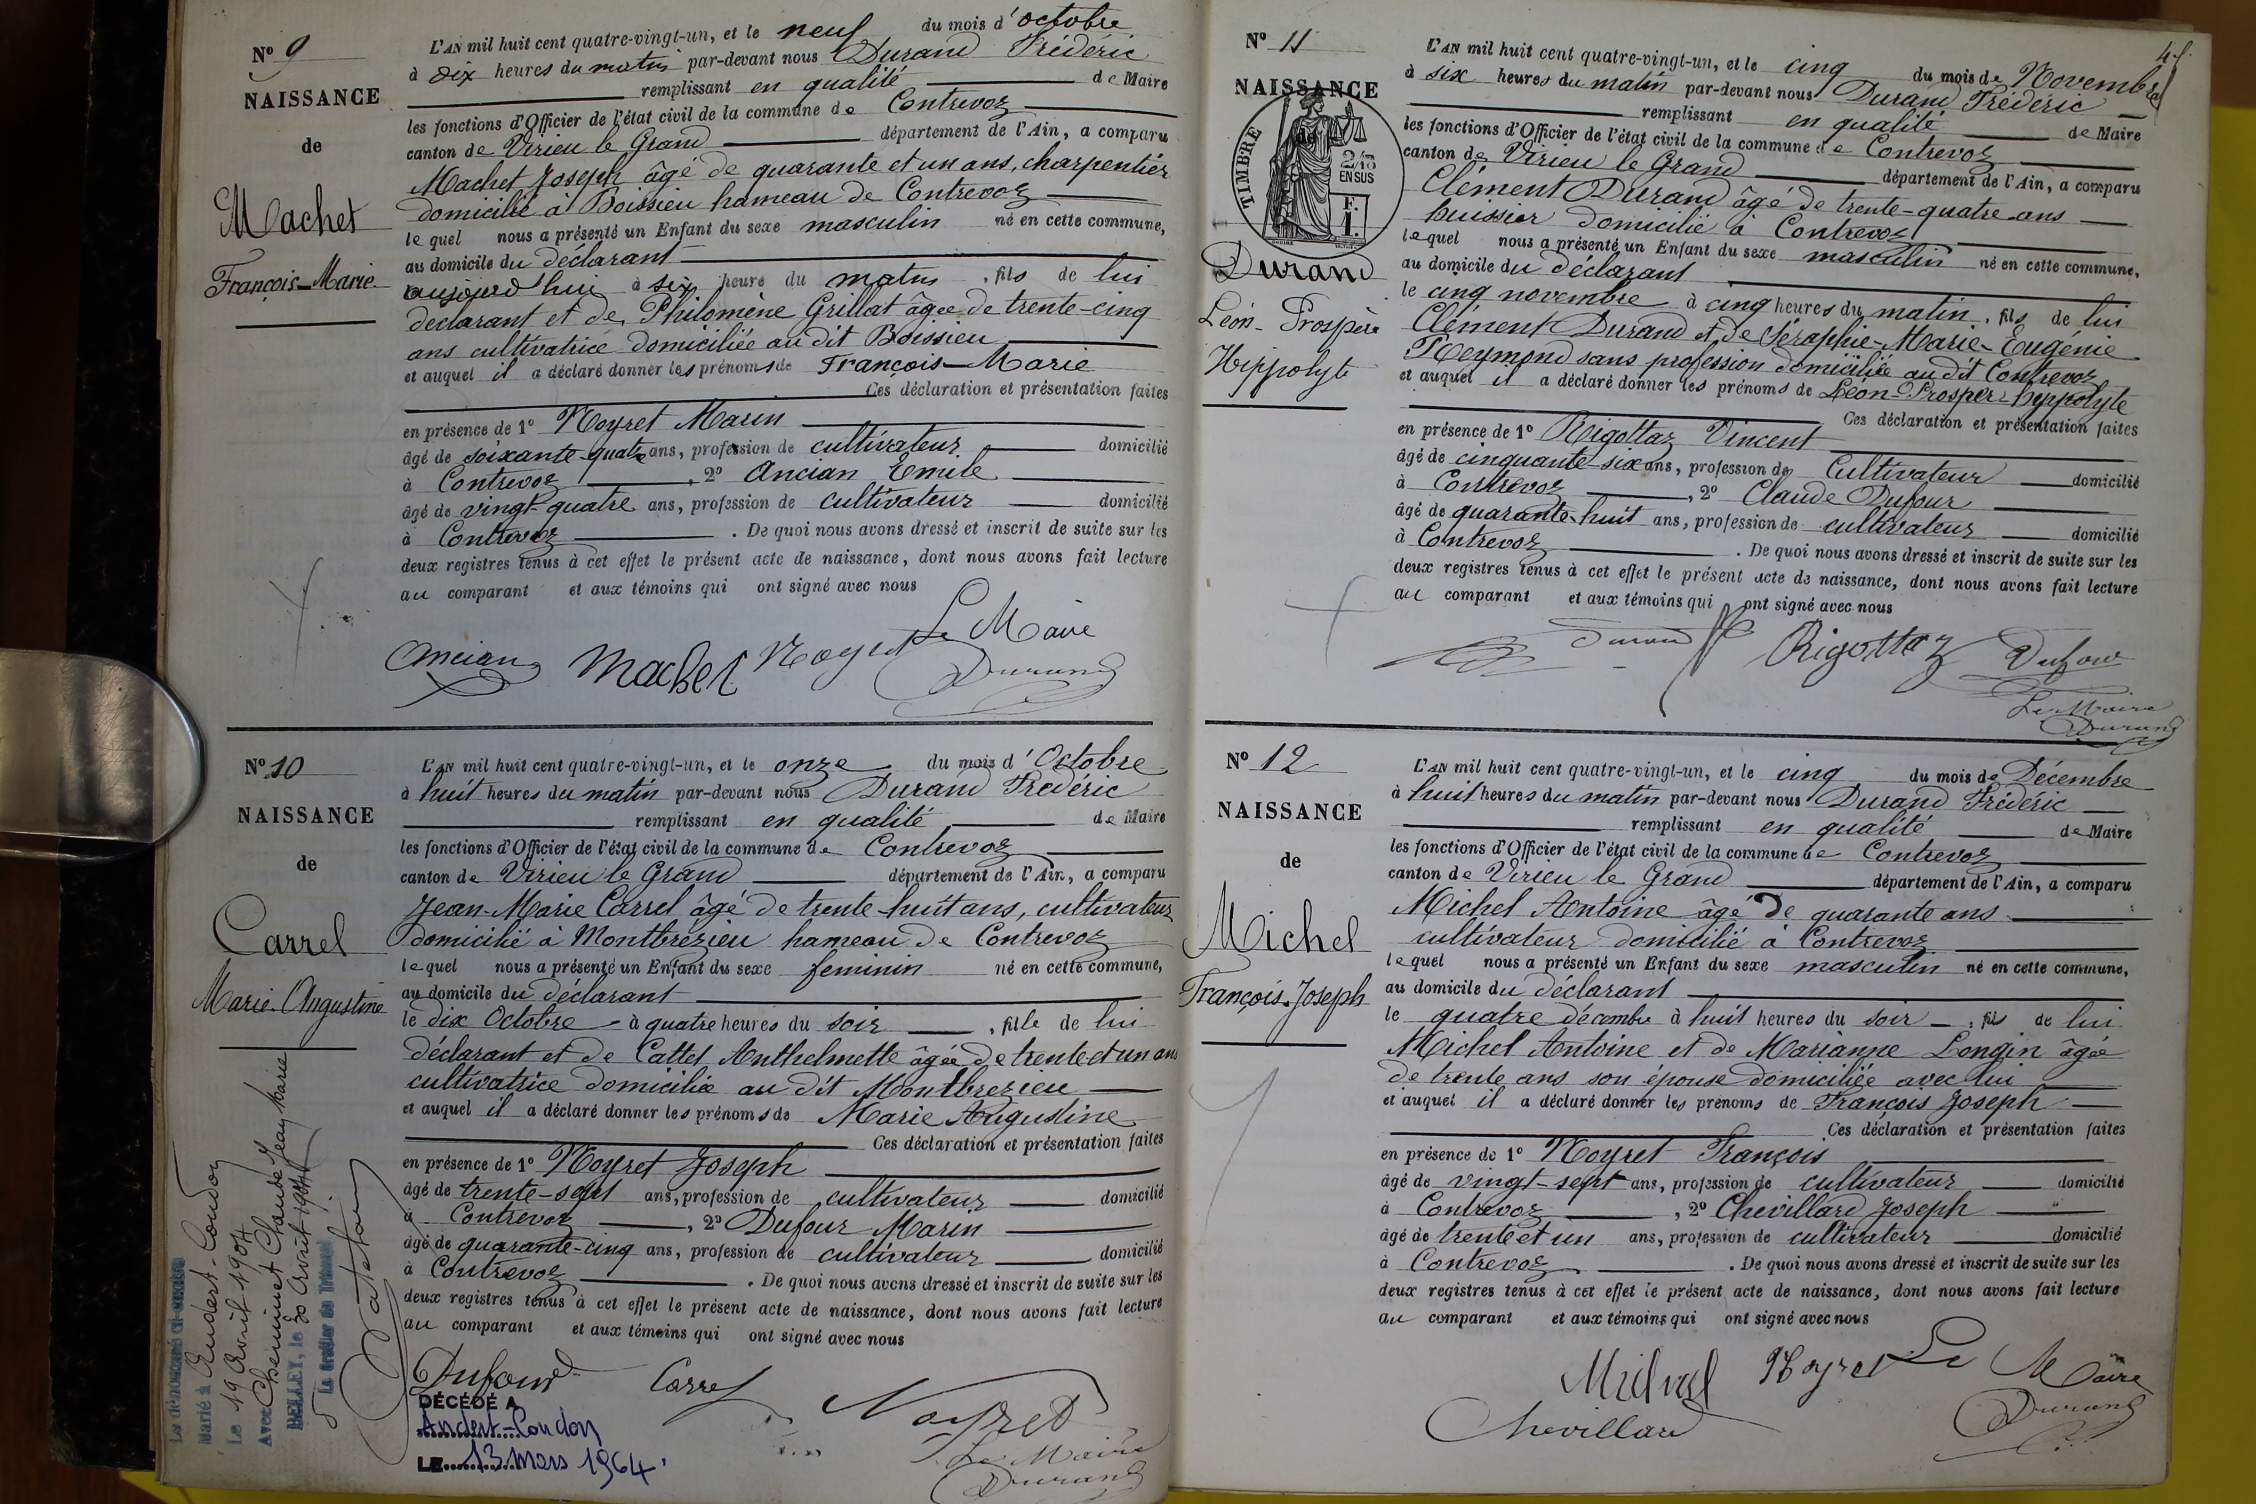 N° 9
NAISSANCE
de
Machet
François-Marie
L'AN mil huit cent quatre-vingt-un, et le neuf du mois d'octobre
à dix heures du matin par-devant nous Durand Frédéric
remplissant en qualité de Maire
les fonctions d'Officier de l'état civil de la commune de Contrevoz
canton de Virieu le Grand département de l'Ain, a comparu
Machet Joseph âgé de quarante et un ans, charpentier
domicilié à Boissieu hameau de Contrevoz
lequel nous a présenté un Enfant du sexe masculin né en cette commune,
au domicile du déclarant
aujourd'hui à six heure du matin, fils de lui
déclarant et de Philomène Grillat âgée de trente-cinq
ans cultivatrice domiciliée au dit Boissieu
et auquel il a déclaré donner les prénoms de François-Marie
Ces déclaration et présentation faites
en présence de 1° Noyret Marin
âgé de soixante-quatre ans, profession de cultivateur domicilié
à Contrevoz, 2° Ancian Emile
âgé de vingt-quatre ans, profession de cultivateur domicilié
à Contrevoz. De quoi nous avons dressé et inscrit de suite sur les
deux registres tenus à cet effet le présent acte de naissance, dont nous avons fait lecture
au comparant et aux témoins qui ont signé avec nous
Ancian Machet Noyret Le Maire
Durand
N° 10
NAISSANCE
de
Carrel
Marie-Augustine
L'AN mil huit cent quatre-vingt-un, et le onze du mois d'Octobre
à huit heures du matin par-devant nous Durand Frédéric
remplissant en qualité de Maire
les fonctions d'Officier de l'état civil de la commune de Contrevoz
canton de Virieu le Grand département de l'Ain, a comparu
Jean-Marie Carrel âgé de trente-huit ans, cultivateur
domicilié à Montbrezieu hameau de Contrevoz
lequel nous a présenté un Enfant du sexe feminin né en cette commune,
au domicile du déclarant
le dix Octobre à quatre heures du soir, fille de lui
déclarant et de Cattet Anthelmette âgée de trente et un ans
cultivatrice domiciliée au dit Montbrezieu
et auquel il a déclaré donner les prénoms de Marie Augustine
Ces déclaration et présentation faites
en présence de 1° Noyret Joseph
âgé de trente-sept ans, profession de cultivateur domicilié
à Contrevoz, 2° Dufour Marin
âgé de quarante-cinq ans, profession de cultivateur domicilié
à Contrevoz. De quoi nous avons dressé et inscrit de suite sur les
deux registres tenus à cet effet le présent acte de naissance, dont nous avons fait lecture
au comparant et aux témoins qui ont signé avec nous
Dufour Carrel Noyret
Le Maire
Durand
DÉCÉDÉ A
Andert-Condon
LE 13 Mars 1964.
La dénommée ci-contre
Marié à Andert-Condon
Le 19 Avril 1904
Avec Cheminet Claude Jean Marie
BELLEY, le 30 Avril 1904
Le Greffier du Tribunal
N° 11
NAISSANCE
de
TIMBRE
2/10
EN SUS
F.
1.
Durand
Léon-Prosper
Hippolyte
L'AN mil huit cent quatre-vingt-un, et le cinq du mois de Novembre
à six heures du matin par-devant nous Durand Frédéric
remplissant en qualité de Maire
les fonctions d'Officier de l'état civil de la commune de Contrevoz
canton de Virieu le Grand département de l'Ain, a comparu
Clément Durand âgé de trente-quatre ans
huissier domicilié à Contrevoz
lequel nous a présenté un Enfant du sexe masculin né en cette commune,
au domicile du déclarant
le cinq novembre à cinq heures du matin, fils de lui
Clément Durand et de Séraphie-Marie-Eugénie
Reymond sans profession domiciliée au dit Contrevoz
et auquel il a déclaré donner les prénoms de Léon-Prosper-hyppolyte
Ces déclaration et présentation faites
en présence de 1° Rigottaz Vincent
âgé de cinquante-six ans, profession de Cultivateur domicilié
à Contrevoz, 2° Claude Dufour
âgé de quarante-huit ans, profession de cultivateur domicilié
à Contrevoz. De quoi nous avons dressé et inscrit de suite sur les
deux registres tenus à cet effet le présent acte de naissance, dont nous avons fait lecture
au comparant et aux témoins qui ont signé avec nous
Durand Rigottaz Dufour
Le Maire
Durand
N° 12
NAISSANCE
de
Michel
François-Joseph
L'AN mil huit cent quatre-vingt-un, et le cinq du mois de Décembre
à huit heures du matin par-devant nous Durand Frédéric
remplissant en qualité de Maire
les fonctions d'Officier de l'état civil de la commune de Contrevoz
canton de Virieu le Grand département de l'Ain, a comparu
Michel Antoine âgé de quarante ans
cultivateur domicilié à Contrevoz
lequel nous a présenté un Enfant du sexe masculin né en cette commune,
au domicile du déclarant
le quatre décembre à huit heures du soir, fils de lui
Michel Antoine et de Marianne Longin âgée
de trente ans son épouse domiciliée avec lui
et auquel il a déclaré donner les prénoms de François Joseph
Ces déclaration et présentation faites
en présence de 1° Noyret François
âgé de vingt-sept ans, profession de cultivateur domicilié
à Contrevoz, 2° Chevillard Joseph
âgé de trente et un ans, profession de cultivateur domicilié
à Contrevoz. De quoi nous avons dressé et inscrit de suite sur les
deux registres tenus à cet effet le présent acte de naissance, dont nous avons fait lecture
au comparant et aux témoins qui ont signé avec nous
Michel Noyret Le Maire
Chevillard Durand